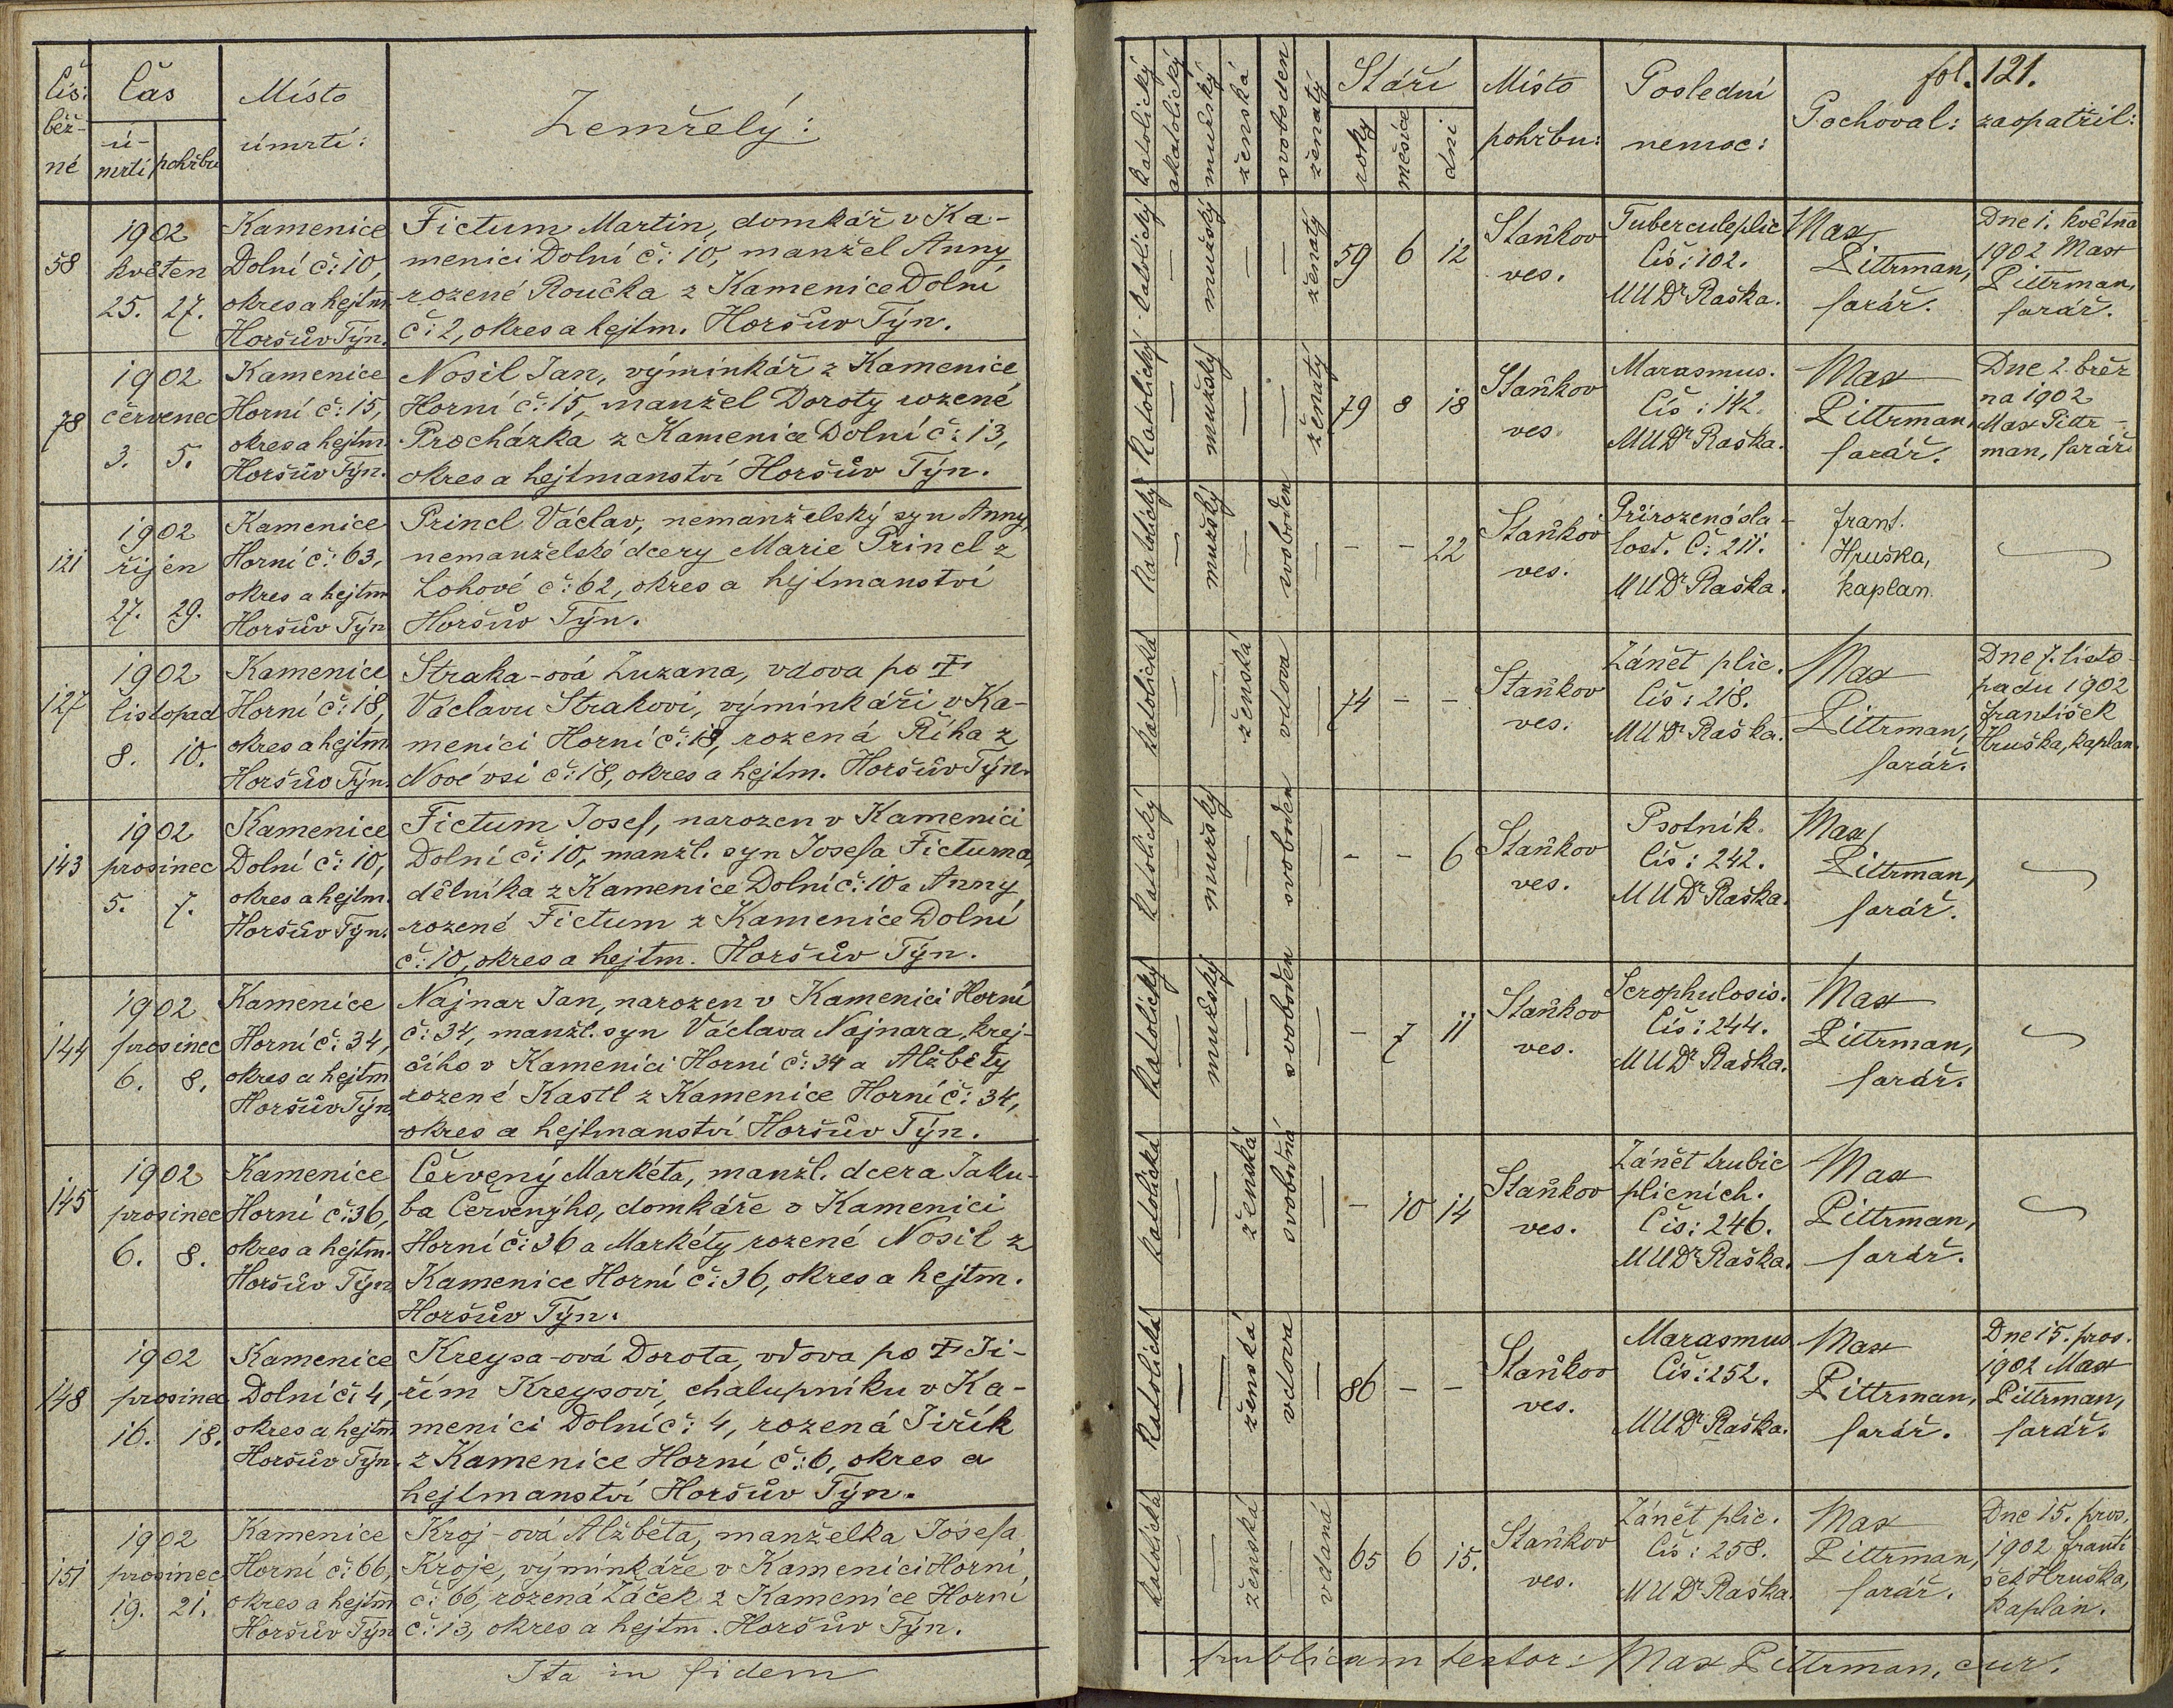 Čís: běž- né
Čas
ú- mrtí
pohřbu
Místo
úmrtí:
Zemřelý:
katolický
akatolický
mužský
ženská
svoboden
ženatý
Stáří
roky
měsíce
dní
Místo
pohřbu:
Poslední
nemoc:
fol. 121.
Pochoval:
zaopatřil:
58
1902
květen
25. 27.
Kamenice
Dolní č: 10,
okres a hejtm
Horšův Týn.
Fictum Martin, domkář v Ka-
menici Dolní č: 10, manžel Anny
rozené Roučka z Kamenice Dolní
č: 2, okres a hejtm. Horšův Týn.
katolický
—
mužský
—
—
ženatý
59 6 12
Staňkov
ves.
Tubercul plic
Čís: 102.
MUDr Raška.
Max
Pittrman,
farář.
Dne 1. května
1902 Max
Pittrman,
farář.
78
1902
červenec
3. 5.
Kamenice
Horní č: 15,
okres a hejtm.
Horšův Týn.
Nosil Jan, výminkář z Kamenice
Horní č: 15, manžel Doroty rozené
Procházka z Kamenice Dolní č: 13,
okres a hejtmanství Horšův Týn.
Katolický
—
mužský
—
—
ženatý
79 8 18
Staňkov
ves
Marasmus.
Čís: 142.
MUDr Raška.
Max
Pittrman,
farář.
Dne 2. břez
na 1902
Max Pittr-
man, farář
121
1902
říjen
27. 29.
Kamenice
Horní č: 63,
okres a hejtm
Horšův Týn
Princl Václav, nemanželský syn Anny,
nemanželské dcery Marie Princl z
Lohové č: 62, okres a hejtmanství
Horšův Týn.
Katolický
—
mužský
—
svoboden
—
– – 22
Staňkov
ves.
Přirozená sla-
bost. Č: 211.
MUDr Raška.
Frant.
Hruška,
kaplan.
127
1902
listopad
8. 10.
Kamenice
Horní č: 18,
okres a hejtm
Horšův Týn.
Straka-ová Zuzana, vdova po ‡
Václavu Strakovi, výminkáři v Ka-
menici Horní č: 18, rozená Říha z
Nové vsi č: 18, okres a hejtm. Horšův Týn.
katolická
—
—
ženská
vdova
74 – –
Staňkov
ves.
Zánět plic.
Čís: 218.
MUDr Raška.
Max
Pittrman,
farář.
Dne 7. listo-
padu 1902
František
Hruška, kaplan.
143
1902
prosinec
5. 7.
Kamenice
Dolní č: 10,
okres a hejtm.
Horšův Týn.
Fictum Josef, narozen v Kamenici
Dolní č: 10, manžl. syn Josefa Fictuma,
dělníka z Kamenice Dolní č: 10 a Anny
rozené Fictum z Kamenice Dolní
č: 10, okres a hejtm. Horšův Týn.
katolický
—
mužský
—
svoboden
—
– – 6
Staňkov
ves.
Psotník.
Čís: 242.
MUDr Raška.
Max
Pittrman,
farář.
144
1902
prosinec
6. 8.
Kamenice
Horní č: 34,
okres a hejtm
Horšův Týn
Najnar Jan, narozen v Kamenici Horní
č: 34, manžl. syn Václava Najnara, krej-
čího v Kamenici Horní č: 34 a Alžběty
rozené Kastl z Kamenice Horní č: 34,
okres a hejtmanství Horšův Týn.
katolický
—
mužský
—
svoboden
—
– 7 11
Staňkov
ves.
Scrophulosis.
Čís: 244.
MUDr Raška.
Max
Pittrman,
farář.
145
1902
prosinec
6. 8.
Kamenice
Horní č: 36,
okres a hejtm.
Horšův Týn
Červený Markéta, manžl. dcera Jaku-
ba Červenýho, domkáře v Kamenici
Horní č: 36 a Markéty rozené Nosil z
Kamenice Horní č: 36, okres a hejtm.
Horšův Týn.
katolická
—
—
ženská
svobodná
—
– 10 14
Staňkov
ves.
Zánět trubic
plicních.
Čís: 246.
MUDr Raška.
Max
Pittrman,
farář.
148
1902
prosinec
16. 18.
Kamenice
Dolní č: 4,
okres a hejtm
Horšův Týn.
Kreysa-ová Dorota, vdova po ‡ Ji-
řím Kreysovi, chalupníku v Ka-
menici Dolní č: 4, rozená Jiřík
z Kamenice Horní č: 6, okres a
hejtmanství Horšův Týn.
katolická
—
—
ženská
vdova
—
86 – –
Staňkov
ves.
Marasmus
Čís: 252.
MUDr Raška.
Max
Pittrman,
farář.
Dne 15. pros.
1902 Max
Pittrman,
farář.
151
1902
prosinec
19. 21.
Kamenice
Horní č: 66,
okres a hejtm
Horšův Týn
Kroj-ová Alžběta, manželka Josefa
Kroje, výminkáře v Kamenici Horní,
č: 66, rozená Záček z Kamenice Horní
č: 13, okres a hejtm. Horšův Týn.
katolická
—
—
ženská
—
vdaná
65 6 15.
Staňkov
ves.
Zánět plic.
Čís: 258.
MUDr Raška.
Max
Pittrman,
farář.
Dne 15. pros,
1902 Franti
šek Hruška,
kaplan.
Ita in fidem publicam testor: Max Pittrman, cur.